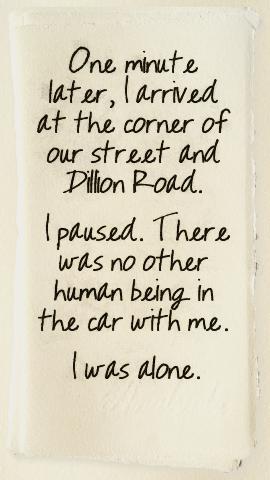 One minute
later, I arrived
at the corner of
our street and
Dillion Road.
I paused. There
was no other
human being in
the car with me.
I was alone.